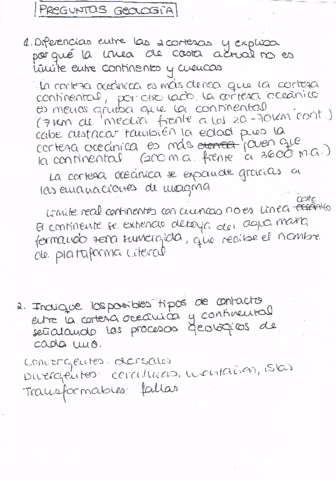 PREGUNTAS GEOLOGÍA
1. Diferencias entre las 2 cortezas y explica
por qué la línea de costa actual no es
límite entre continentes y cuencas
La corteza oceánica es más densa que la corteza
continental, por otro lado, la corteza oceánica
es menos gruesa que la continental
(7 km de media frente a los 20-70 km cont.)
cabe destacar también la edad pues la
corteza oceánica es más joven que
la continental (200 m.a. frente a 3600 m.a.)
La corteza oceánica se expande gracias a
las emanaciones de magma
Límite real continentes con cuencas no es línea coste
El continente se extiende debajo del agua marina
formando zona sumergida, que recibe el nombre
de plataforma litoral
2. Indique los posibles tipos de contacto
entre la corteza oceánica y continental
señalando los procesos geológicos de
cada uno.
Convergentes: dorsales
Divergentes: cordilleras, montañas, islas
Transformables: fallas